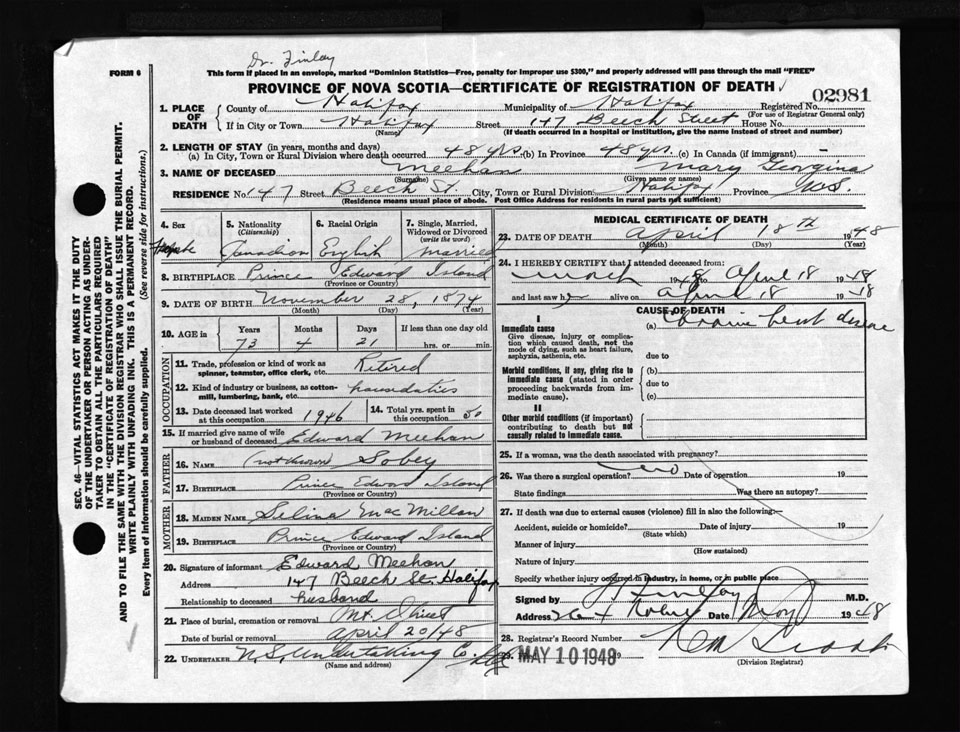 Dr. Finlay
FORM 6
This form if placed in an envelope, marked "Dominion Statistics—Free, penalty for improper use $300," and properly addressed will pass through the mail "FREE"
PROVINCE OF NOVA SCOTIA—CERTIFICATE OF REGISTRATION OF DEATH
02981
1. PLACE OF DEATH
County of Halifax Municipality of Halifax Registered No.
(For use of Registrar General only)
If in City or Town Halifax Street 147 Beech Street House No.
(Name) (If death occurred in a hospital or institution, give the name instead of street and number)
2. LENGTH OF STAY (in years, months and days)
(a) In City, Town or Rural Division where death occurred 48 yrs. (b) In Province 48 yrs. (c) In Canada (if immigrant) —
3. NAME OF DECEASED Meehan Mary Georgina
(Surname) (Given name or names)
RESIDENCE No. 147 Street Beech St. City, Town or Rural Division Halifax Province N.S.
(Residence means usual place of abode. Post Office Address for residents in rural parts not sufficient)
4. Sex
Female
5. Nationality (Citizenship)
Canadian
6. Racial Origin
English
7. Single, Married, Widowed or Divorced (write the word)
Married
8. BIRTHPLACE Prince Edward Island
(Province or Country)
9. DATE OF BIRTH November 28, 1874
(Month) (Day) (Year)
10. AGE in Years Months Days If less than one day old
73 4 21 hrs. or min.
OCCUPATION
11. Trade, profession or kind of work as spinner, teamster, office clerk, etc. Retired
12. Kind of industry or business, as cotton-mill, lumbering, bank, etc. housduties
13. Date deceased last worked at this occupation 1946
14. Total yrs. spent in this occupation 50
15. If married give name of wife or husband of deceased Edward Meehan
FATHER
16. NAME (not known) Sobey
17. BIRTHPLACE Prince Edward Island
(Province or Country)
MOTHER
18. MAIDEN NAME Selina MacMillan
19. BIRTHPLACE Prince Edward Island
(Province or Country)
20. Signature of informant Edward Meehan
Address 147 Beech St. Halifax
Relationship to deceased husband
21. Place of burial, cremation or removal Mt. Olivet
Date of burial or removal April 20/48
22. UNDERTAKER N.S. Undertaking Co.
(Name and address)
MEDICAL CERTIFICATE OF DEATH
23. DATE OF DEATH April 18th 1948
(Month) (Day) (Year)
24. I HEREBY CERTIFY that I attended deceased from:
March 1948 April 18 1948
and last saw her alive on April 18 1948
CAUSE OF DEATH
I
Immediate cause
Give disease, injury or complication which caused death, not the mode of dying, such as heart failure, asphyxia, asthenia, etc.
(a) Chronic heart disease
due to
Morbid conditions, if any, giving rise to immediate cause (stated in order proceeding backwards from immediate cause).
(b)
due to
(c)
II
Other morbid conditions (if important) contributing to death but not causally related to immediate cause.
25. If a woman, was the death associated with pregnancy?
26. Was there a surgical operation? no Date of operation 19
State findings Was there an autopsy?
27. If death was due to external causes (violence) fill in also the following:—
Accident, suicide or homicide? Date of injury 19
(State which)
Manner of injury
(How sustained)
Nature of injury
Specify whether injury occurred in industry, in home, or in public place
Signed by Finlay M.D.
Address Date May 1948
28. Registrar's Record Number
29. MAY 10 1948 9
(Division Registrar)
SEC. 46—VITAL STATISTICS ACT MAKES IT THE DUTY
OF THE UNDERTAKER OR PERSON ACTING AS UNDER-
TAKER TO OBTAIN ALL THE PARTICULARS REQUIRED
IN THE "CERTIFICATE OF REGISTRATION OF DEATH"
AND TO FILE THE SAME WITH THE DIVISION REGISTRAR WHO SHALL ISSUE THE BURIAL PERMIT.
WRITE PLAINLY WITH UNFADING INK. THIS IS A PERMANENT RECORD.
Every item of information should be carefully supplied. (See reverse side for instructions.)